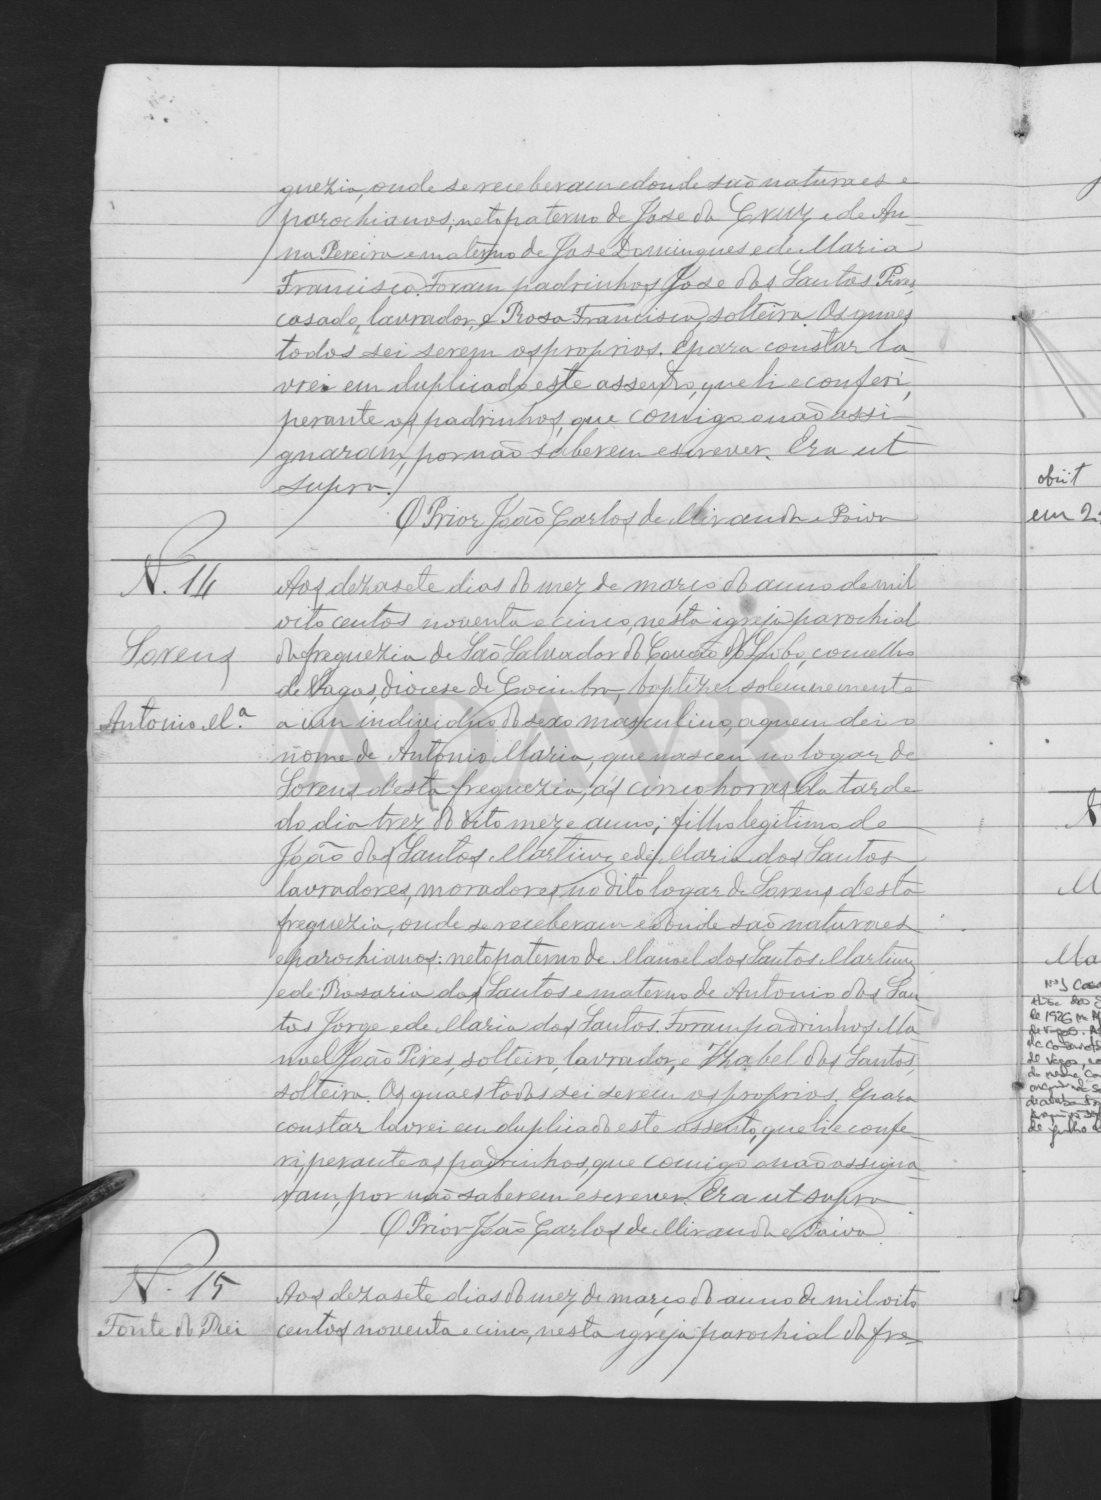 guezia, onde se receberam e donde são naturaes e
parochianos; neto paterno de Jose da Cruz e de An-
na Pereira e materno de Jose Domingues e de Maria
Francisca. Foram padrinhos Jose dos Santos Pires,
casado, lavrador, e Rosa Francisca, solteira. Os quaes
todos sei serem os proprios. E para constar la-
vrei em duplicado este assento, que li e conferi,
perante os padrinhos, que comigo o não assi-
gnaram, por não saberem escrever. Era ut
supra.
O Prior João Carlos de Miranda e Paiva
N. 14
Sorens
Antonio M.ª
Aos dezasete dias do mez de março do anno de mil
oito centos noventa e cinco, nesta igreja parochial
da freguezia de São Salvador do Covão do Lobo, concelho
de Vagos, diocese de Coimbra, baptizei solemnemente
a um individuo do sexo masculino, a quem dei o
nome de Antonio Maria, que nasceu no logar de
Sorens desta freguezia, ás cinco horas da tarde
do dia trez do dito mez e anno; filho legitimo de
João dos Santos Martins e de Maria dos Santos
lavradores, moradores no dito logar de Sorens desta
freguezia, onde se receberam e donde são naturaes
e parochianos: neto paterno de Manoel dos Santos Martins
e de Rosaria dos Santos e materno de Antonio dos San-
tos Jorge e de Maria dos Santos. Foram padrinhos Ma-
noel João Pires, solteiro, lavrador, e Izabel dos Santos,
solteira. Os quaes todos sei serem os proprios. E para
constar lavrei em duplicado este assento, que li e confe-
ri, perante os padrinhos, que comigo o não assigna-
ram, por não saberem escrever. Era ut supra
O Prior João Carlos de Miranda e Paiva
N. 15
Fonte do Rei
Aos dezasete dias do mez de março do anno de mil oito
centos noventa e cinco, nesta igreja parochial da fre-
ADAVR
obiit
em 2
N
M
Ma
Nº 1 Cas
de 1926